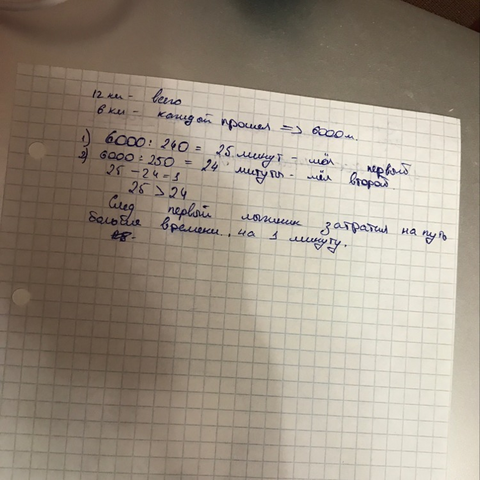 12 км - всего
6 км - каждый прошел => 6000 м.
1) 6000 : 240 = 25 минут - шёл первый
2) 6000 : 250 = 24 минуты - шёл второй
25 - 24 = 1
25 > 24
След первый лыжник затратил на путь
больше времени на 1 минуту.